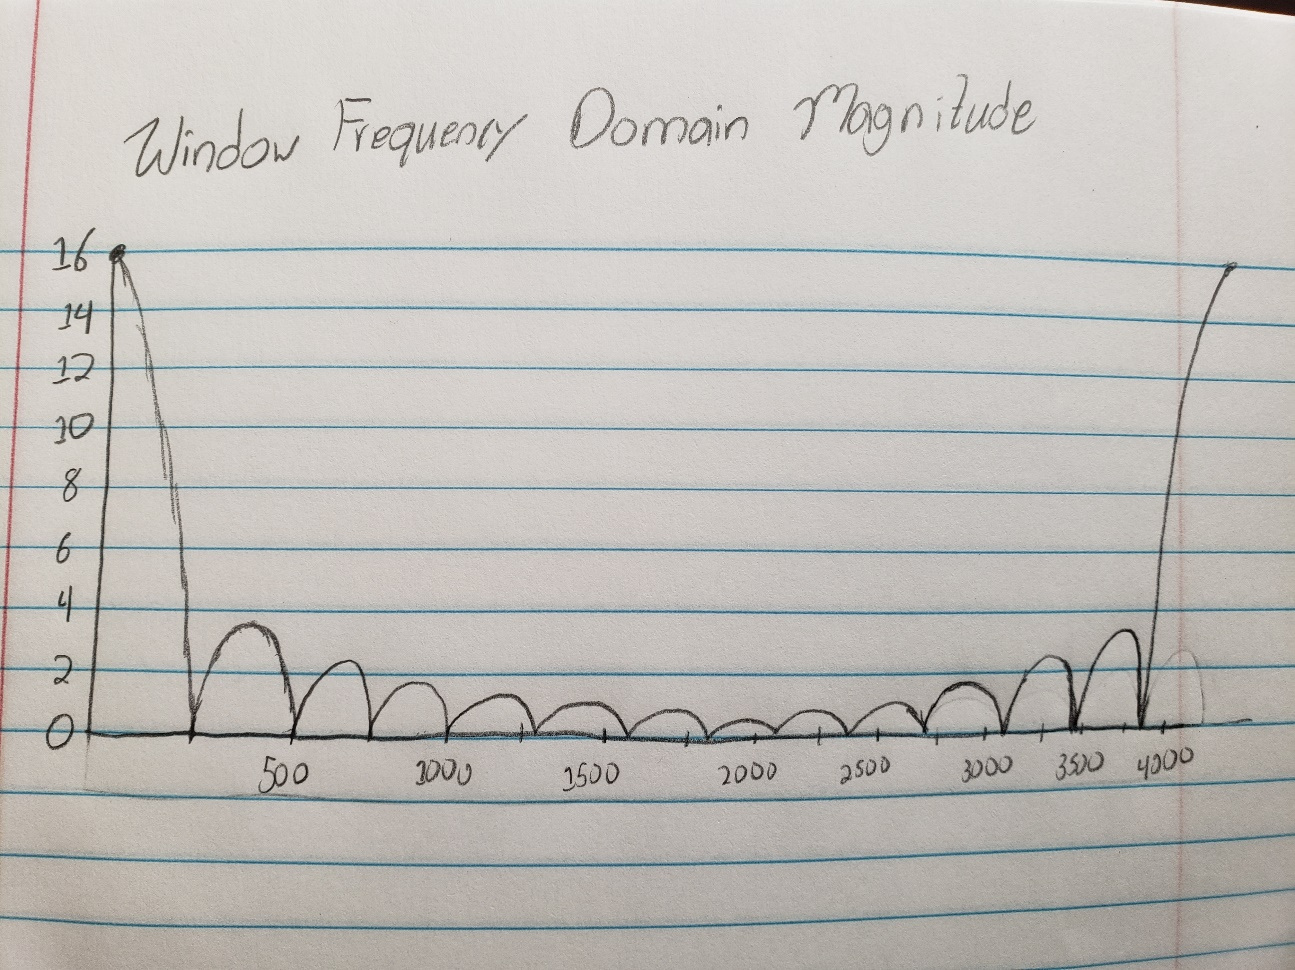 Window Frequency Domain Magnitude
16
14
12
10
8
6
4
2
0
500 1000 1500 2000 2500 3000 3500 4000